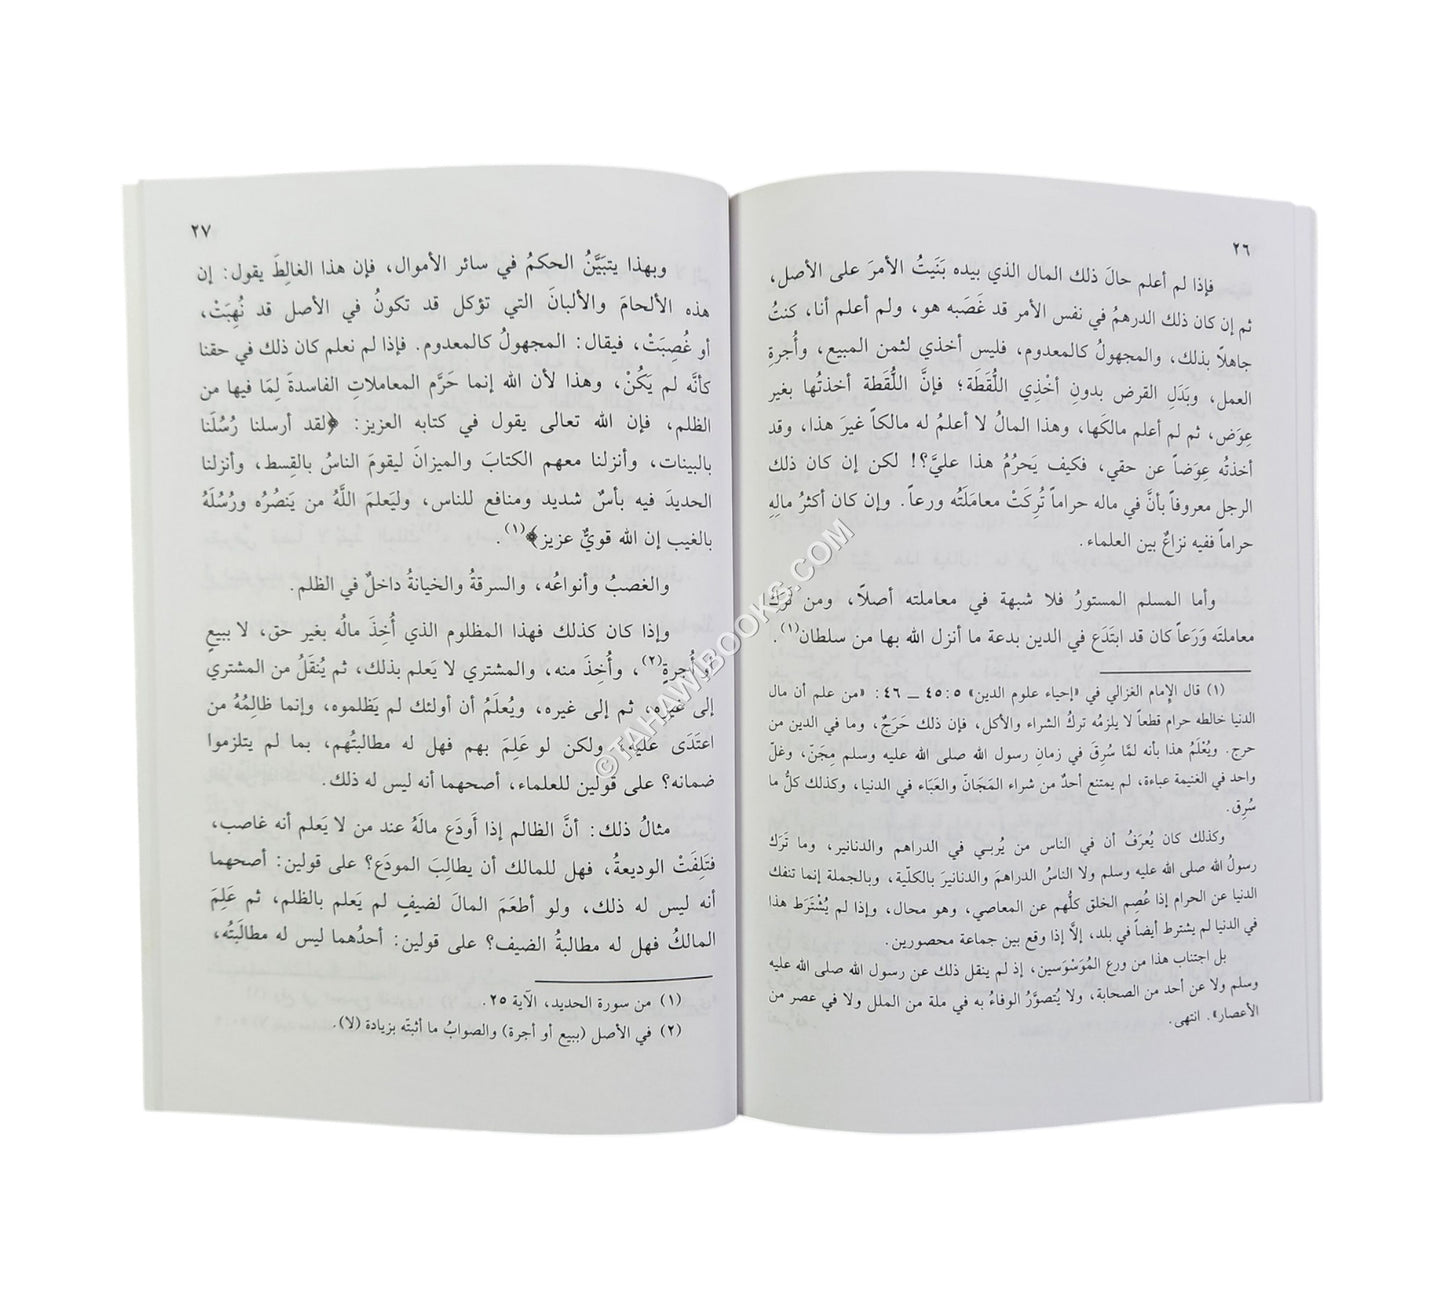 ٢٦
فإذا لم أعلم حالَ ذلك المال الذي بيده بَنَيتُ الأمرَ على الأصل،
ثم إن كان ذلك الدرهمُ في نفس الأمر قد غَصَبه هو، ولم أعلم أنا، كنتُ
جاهلاً بذلك، والمجهولُ كالمعدوم، فليس أخذي لثمن المبيع، وأُجرةِ
العمل، وبَدَلِ القرض بدونِ أخْذِي اللُّقَطَة؛ فإنَّ اللُّقَطة أخذتُها بغير
عِوَض، ثم لم أعلم مالكَها، وهذا المالُ لا أعلمُ له مالكاً غيرَ هذا، وقد
أخذتُه عِوَضاً عن حقي، فكيف يَحرُمُ هذا عليَّ؟! لكن إن كان ذلك
الرجل معروفاً بأنَّ في ماله حراماً تُرِكَتْ معامَلَتُه ورعاً. وإن كان أكثرُ مالِهِ
حراماً ففيه نزاعٌ بين العلماء.
وأما المسلم المستورُ فلا شبهة في معاملته أصلاً، ومن تَرَك
معاملتَه وَرَعاً كان قد ابتَدَع في الدين بدعة ما أنزل الله بها من سلطان(١).
(١) قال الإمام الغزالي في «إحياء علوم الدين» ٥: ٤٥ ــ ٤٦: «من علم أن مال
الدنيا خالطه حرام قطعاً لا يلزمُه تركُ الشراء والأكل، فإن ذلك حَرَجٌ، وما في الدين من
حرج. ويُعْلَمُ هذا بأنه لمَّا سُرِقَ في زمانِ رسول الله صلى الله عليه وسلم مِجَنّ، وغلّ
واحد في الغنيمة عباءة، لم يمتنع أحدٌ من شراء المَجَانّ والعَبَاء في الدنيا، وكذلك كلُّ ما
سُرِق.
وكذلك كان يُعرَفُ أن في الناس من يُربـي في الدراهم والدنانير، وما تَرَك
رسولُ الله صلى الله عليه وسلم ولا الناسُ الدراهمَ والدنانيرَ بالكلّية، وبالجملة إنما تنفك
الدنيا عن الحرام إذا عُصِم الخلق كلُّهم عن المعاصي، وهو محال، وإذا لم يُشْتَرَط هذا
في الدنيا لم يشترط أيضاً في بلد، إلَّا إذا وقع بين جماعة محصورين.
بل اجتناب هذا من ورع المُوَسْوَسين، إذ لم ينقل ذلك عن رسول الله صلى الله عليه
وسلم ولا عن أحد من الصحابة، ولا يُتصوَّرُ الوفاءُ به في ملة من الملل ولا في عصر من
الأعصار». انتهى.
٢٧
وبهذا يتبَيَّنُ الحكمُ في سائر الأموال، فإن هذا الغالِطَ يقول: إن
هذه الألحامَ والألبانَ التي تؤكل قد تكونُ في الأصل قد نُهِبَتْ،
أو غُصِبَتْ، فيقال: المجهولُ كالمعدوم. فإذا لم نعلم كان ذلك في حقنا
كأنَّه لم يَكُنْ، وهذا لأن الله إنما حَرَّم المعاملاتِ الفاسدةَ لِمَا فيها من
الظلم، فإن الله تعالى يقول في كتابه العزيز: ﴿لقد أرسلنا رُسُلَنا
بالبينات، وأنزلنا معهم الكتابَ والميزانَ ليقومَ الناسُ بالقِسط، وأنزلنا
الحديدَ فيه بأسٌ شديد ومنافع للناس، وليَعلمَ اللَّهُ من يَنصُرُه ورُسُلَهُ
بالغيب إن الله قويٌّ عزيز﴾(١).
والغصبُ وأنواعُه، والسرقةُ والخيانةُ داخلٌ في الظلم.
وإذا كان كذلك فهذا المظلوم الذي أُخِذَ مالُه بغير حق، لا ببيعٍ
أو أُجرةٍ(٢)، وأُخِذَ منه، والمشتري لا يَعلم بذلك، ثم يُنقَلُ من المشتري
إلى غيره، ثم إلى غيره، ويُعلَمُ أن أولئك لم يَظلموه، وإنما ظالِمُهُ من
اعتَدَى عليه، ولكن لو عَلِمَ بهم فهل له مطالبتُهم، بما لم يتلزموا
ضمانه؟ على قولين للعلماء، أصحهما أنه ليس له ذلك.
مثالُ ذلك: أنَّ الظالم إذا أَودَع مالَهُ عند من لا يَعلم أنه غاصب،
فتَلِفَتْ الوديعةُ، فهل للمالك أن يطالِبَ المودَع؟ على قولين: أصحهما
أنه ليس له ذلك، ولو أطعَمَ المالَ لضيفٍ لم يَعلم بالظلم، ثم عَلِمَ
المالكُ فهل له مطالبةُ الضيف؟ على قولين: أحدُهما ليس له مطالَبَتُه،
(١) من سورة الحديد، الآية ٢٥.
(٢) في الأصل (ببيع أو أجرة) والصوابُ ما أثبتّه بزيادة (لا).
©TAHAWIBOOKS.COM